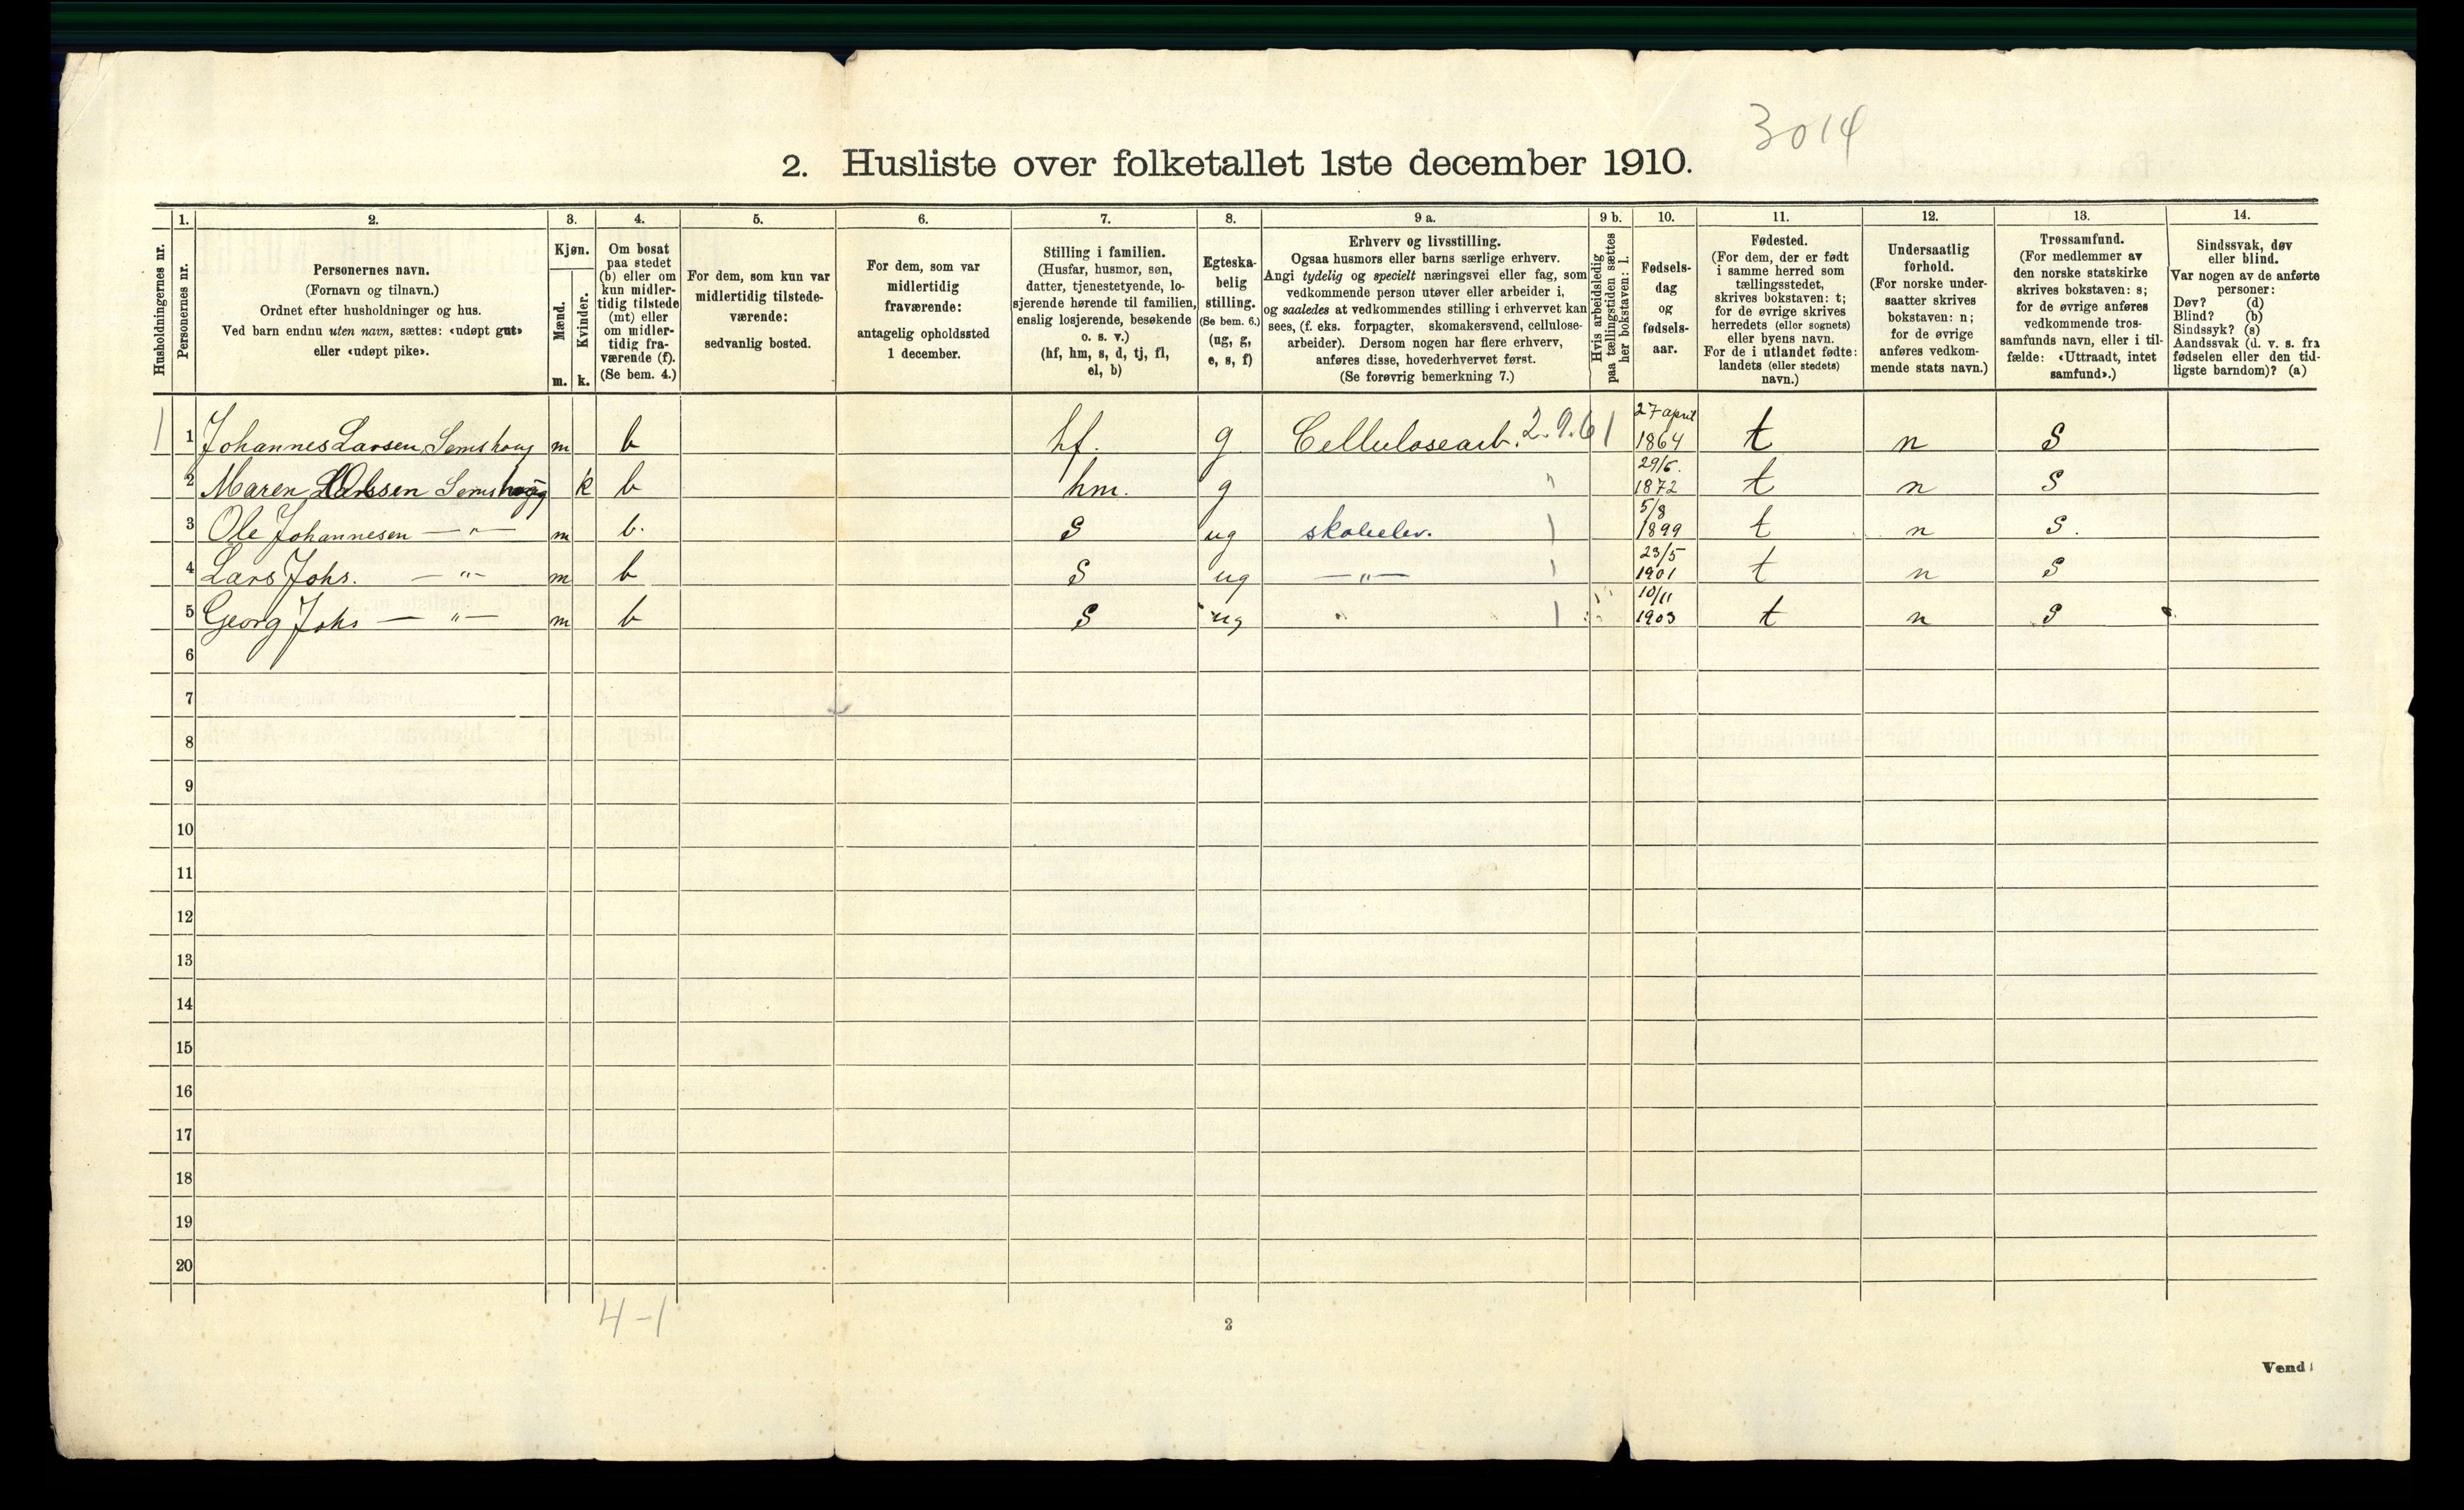 3014
2. Husliste over folketallet 1ste december 1910.
Husholdningernes nr.
1.
Personernes nr.
2.
Personernes navn.
(Fornavn og tilnavn.)
Ordnet efter husholdninger og hus.
Ved barn endnu uten navn, sættes: «udøpt gut»
eller «udøpt pike».
3.
Kjøn.
Mænd.
Kvinder.
m. k.
4.
Om bosat
paa stedet
(b) eller om
kun midler-
tidig tilstede
(mt) eller
om midler-
tidig fra-
værende (f).
(Se bem. 4.)
5.
For dem, som kun var
midlertidig tilstede-
værende:
sedvanlig bosted.
6.
For dem, som var
midlertidig
fraværende:
antagelig opholdssted
1 december.
7.
Stilling i familien.
(Husfar, husmor, søn,
datter, tjenestetyende, lo-
sjerende hørende til familien,
enslig losjerende, besøkende
o. s. v.)
(hf, hm, s, d, tj, fl,
el, b)
8.
Egteska-
belig
stilling.
(Se bem. 6.)
(ug, g,
e, s, f)
9 a.
Erhverv og livsstilling.
Ogsaa husmors eller barns særlige erhverv.
Angi tydelig og specielt næringsvei eller fag, som
vedkommende person utøver eller arbeider i,
og saaledes at vedkommendes stilling i erhvervet kan
sees, (f. eks. forpagter, skomakersvend, cellulose-
arbeider). Dersom nogen har flere erhverv,
anføres disse, hovederhvervet først.
(Se forøvrig bemerkning 7.)
9 b.
Hvis arbeidsledig
paa tællingstiden sættes
her bokstaven: l.
10.
Fødsels-
dag
og
fødsels-
aar.
11.
Fødested.
(For dem, der er født
i samme herred som
tællingsstedet,
skrives bokstaven: t;
for de øvrige skrives
herredets (eller sognets)
eller byens navn.
For de i utlandet fødte:
landets (eller stedets)
navn.)
12.
Undersaatlig
forhold.
(For norske under-
saatter skrives
bokstaven: n;
for de øvrige
anføres vedkom-
mende stats navn.)
13.
Trossamfund.
(For medlemmer av
den norske statskirke
skrives bokstaven: s;
for de øvrige anføres
vedkommende tros-
samfunds navn, eller i til-
fælde: «Uttraadt, intet
samfund».)
14.
Sindssvak, døv
eller blind.
Var nogen av de anførte
personer:
Døv? (d)
Blind? (b)
Sindssyk? (s)
Aandssvak (d. v. s. fra
fødselen eller den tid-
ligste barndom)? (a)
1 1 Johannes Larsen Semshoug m b hf. g Cellulosearb. 2.9.61 27 april 1864 t n S
2 Maren Semshoug k b hm. g " 29/6. 1872 t n S
3 Ole Johannesen — " — m b. S ug skoleelev. 5/8 1899 t n S.
4 Lars Johs. — " — m b S ug — " — 23/5 1901 t n S
5 Georg Johs — " — m b S ug 10/11 1903 t n S
6
7
8
9
10
11
12
13
14
15
16
17
18
19
20
4-1
2
Vend!